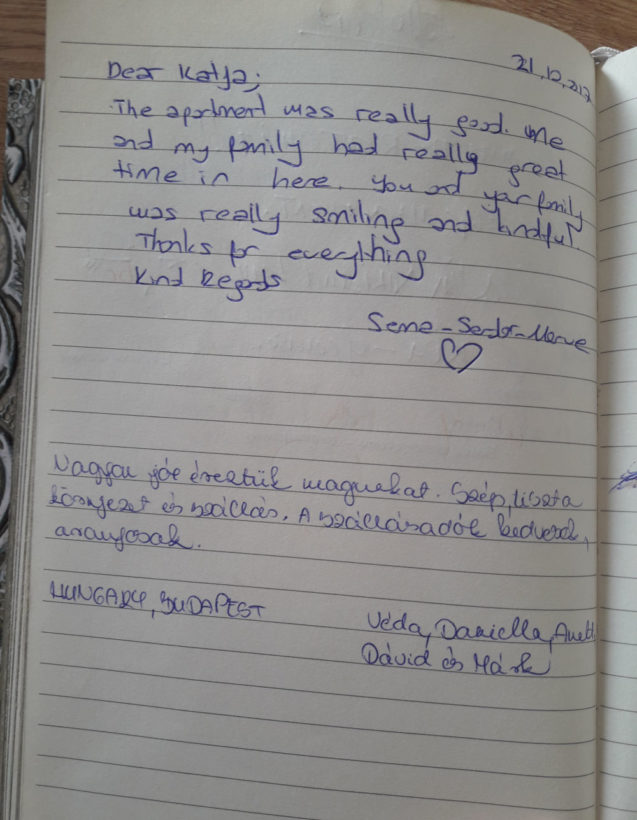 21.12.2017
Dear Katja;
The apartment was really good. Me
and my family had really great
time in here. You and your family
was really smiling and kindiful.
Thanks for everything
Kind Regards
Sema - Serdar - Merve
Nagyon jól éreztük magunkat. Szép, tiszta
környezet és szállás. A szállásadók kedvesek,
aranyosak.
HUNGARY, BUDAPEST
Véda, Daniella, Anett
Dávid és Márk